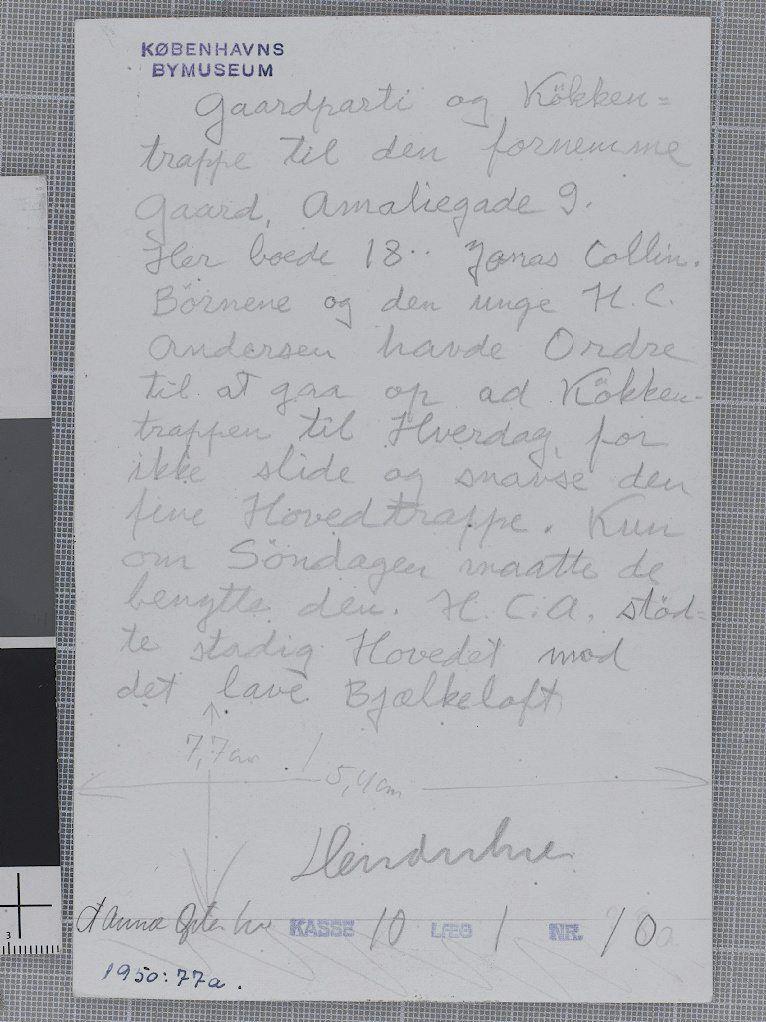 KØBENHAVNS
BYMUSEUM
Gaardparti og Kökken=
trappe til den fornemme
Gaard, Amaliegade 9.
Her boede 18.. Jonas Collin.
Börnene og den unge H. C.
Andersen havde Ordre
til at gaa op ad Kökken-
trappen til Hverdag, for
ikke slide og snavse den
fine Hovedtrappe. Kun
om Söndagen maatte de
benytte den. H. C. A. stöd=
te stadig Hovedet mod
det lave Bjælkeloft
7,7 cm
5,4 cm
KASSE 10 LÆG 1 NR. 10
1950:77a.